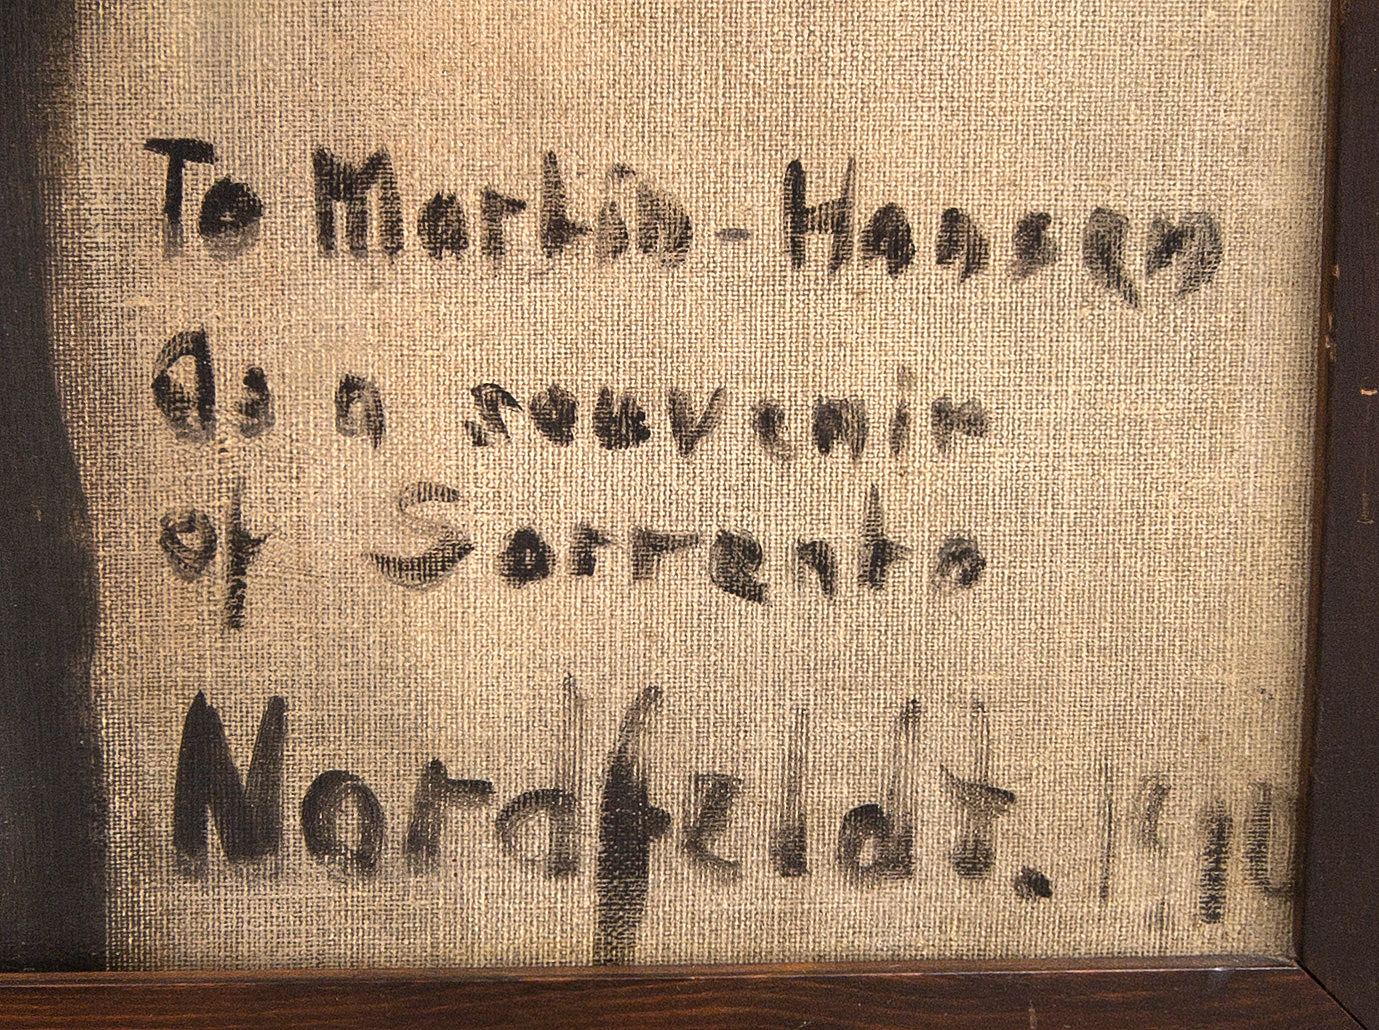 To Martin-Hansen
as a souvenir
of Sorrento
Nordfeldt.